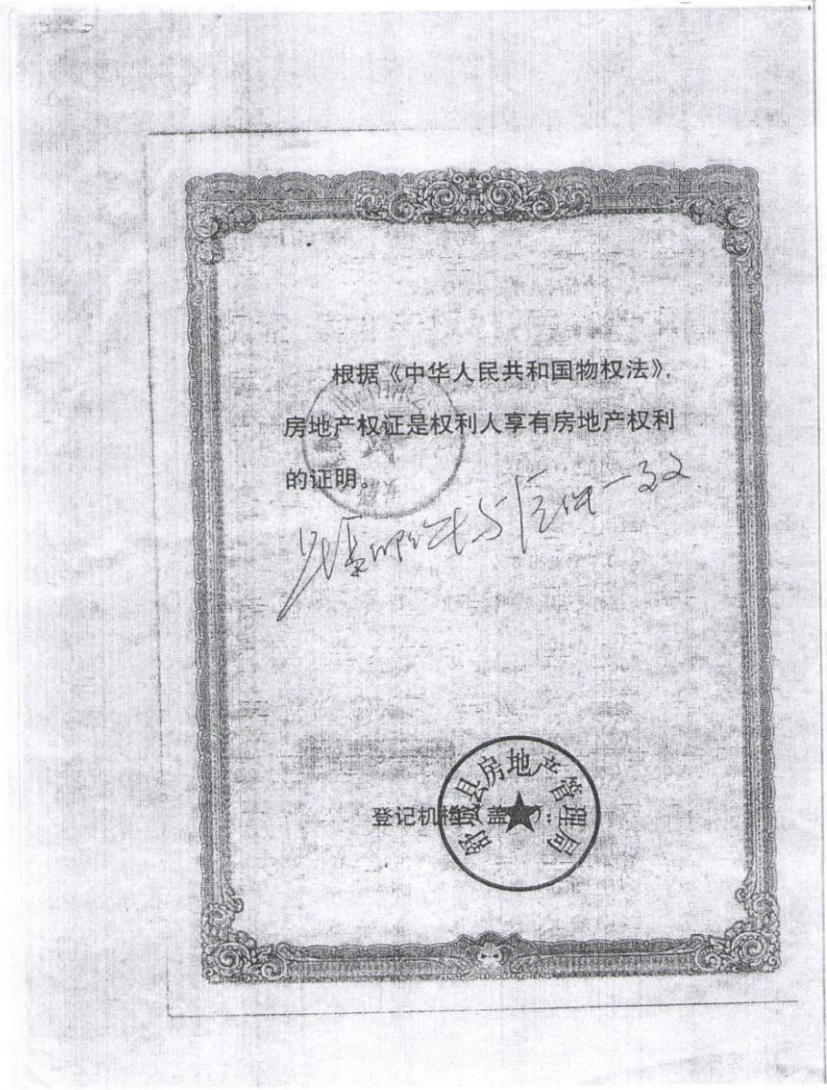 根据《中华人民共和国物权法》,
房地产权证是权利人享有房地产权利
的证明。
与原件一致
登记机构(盖章):
县房地产管理局